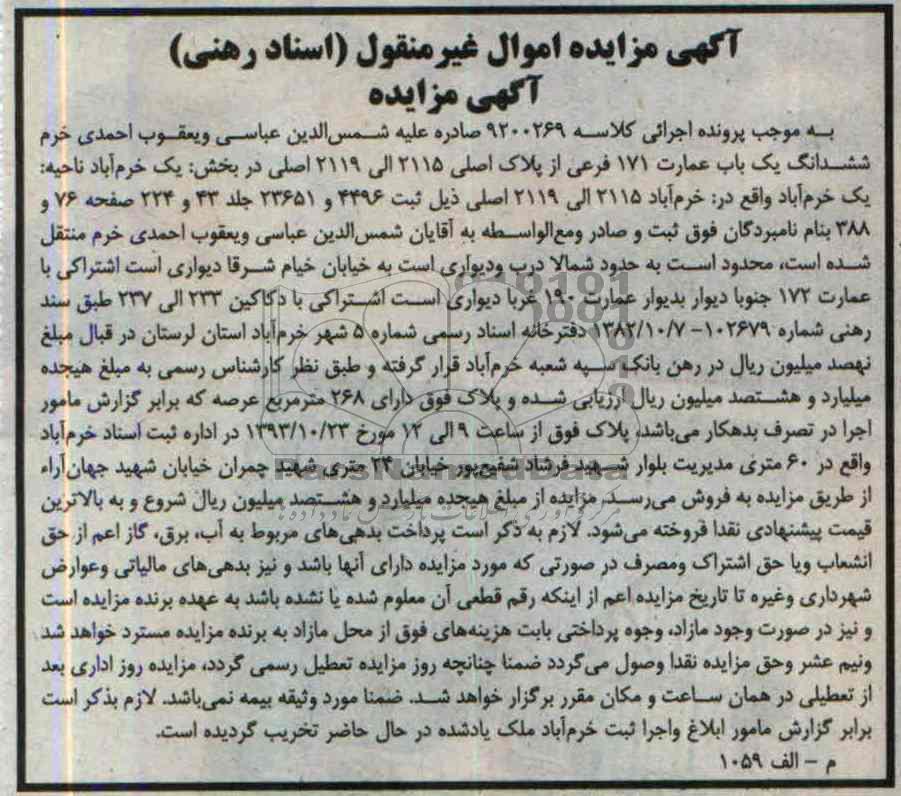 آگهی مزایده اموال غیرمنقول (اسناد رهنی)
آگهی مزایده
به موجب پرونده اجرائی کلاسه ۹۲۰۰۲۶۹ صادره علیه شمس‌الدین عباسی ویعقوب احمدی خرم
ششدانگ یک باب عمارت ۱۷۱ فرعی از پلاک اصلی ۲۱۱۵ الی ۲۱۱۹ اصلی در بخش: یک خرم‌آباد ناحیه:
یک خرم‌آباد واقع در: خرم‌آباد ۲۱۱۵ الی ۲۱۱۹ اصلی ذیل ثبت ۴۴۹۶ و ۲۳۶۵۱ جلد ۴۳ و ۲۲۴ صفحه ۷۶ و
۳۸۸ بنام نامبردگان فوق ثبت و صادر ومع‌الواسطه به آقایان شمس‌الدین عباسی ویعقوب احمدی خرم منتقل
شده است، محدود است به حدود شمالا درب ودیواری است به خیابان خیام شرقا دیواری است اشتراکی با
عمارت ۱۷۲ جنوبا دیوار بدیوار عمارت ۱۹۰ غربا دیواری است اشتراکی با دکاکین ۲۳۳ الی ۲۳۷ طبق سند
رهنی شماره ۱۰۲۶۷۹- ۱۳۸۲/۱۰/۷ دفترخانه اسناد رسمی شماره ۵ شهر خرم‌آباد استان لرستان در قبال مبلغ
نهصد میلیون ریال در رهن بانک سپه شعبه خرم‌آباد قرار گرفته و طبق نظر کارشناس رسمی به مبلغ هیجده
میلیارد و هشتصد میلیون ریال ارزیابی شده و پلاک فوق دارای ۲۶۸ مترمربع عرصه که برابر گزارش مامور
اجرا در تصرف بدهکار می‌باشد، پلاک فوق از ساعت ۹ الی ۱۲ مورخ ۱۳۹۳/۱۰/۲۳ در اداره ثبت اسناد خرم‌آباد
واقع در ۶۰ متری مدیریت بلوار شهید فرشاد شفیع‌پور خیابان ۲۴ متری شهید چمران خیابان شهید جهان‌آراء
از طریق مزایده به فروش می‌رسد. مزایده از مبلغ هیجده میلیارد و هشتصد میلیون ریال شروع و به بالاترین
قیمت پیشنهادی نقدا فروخته می‌شود. لازم به ذکر است پرداخت بدهی‌های مربوط به آب، برق، گاز اعم از حق
انشعاب ویا حق اشتراک ومصرف در صورتی که مورد مزایده دارای آنها باشد و نیز بدهی‌های مالیاتی وعوارض
شهرداری وغیره تا تاریخ مزایده اعم از اینکه رقم قطعی آن معلوم شده یا نشده باشد به عهده برنده مزایده است
و نیز در صورت وجود مازاد، وجوه پرداختی بابت هزینه‌های فوق از محل مازاد به برنده مزایده مسترد خواهد شد
ونیم عشر وحق مزایده نقدا وصول می‌گردد ضمنا چنانچه روز مزایده تعطیل رسمی گردد، مزایده روز اداری بعد
از تعطیلی در همان ساعت و مکان مقرر برگزار خواهد شد. ضمنا مورد وثیقه بیمه نمی‌باشد. لازم بذکر است
برابر گزارش مامور ابلاغ واجرا ثبت خرم‌آباد ملک یادشده در حال حاضر تخریب گردیده است.
م - الف ۱۰۵۹
ParsNamadData